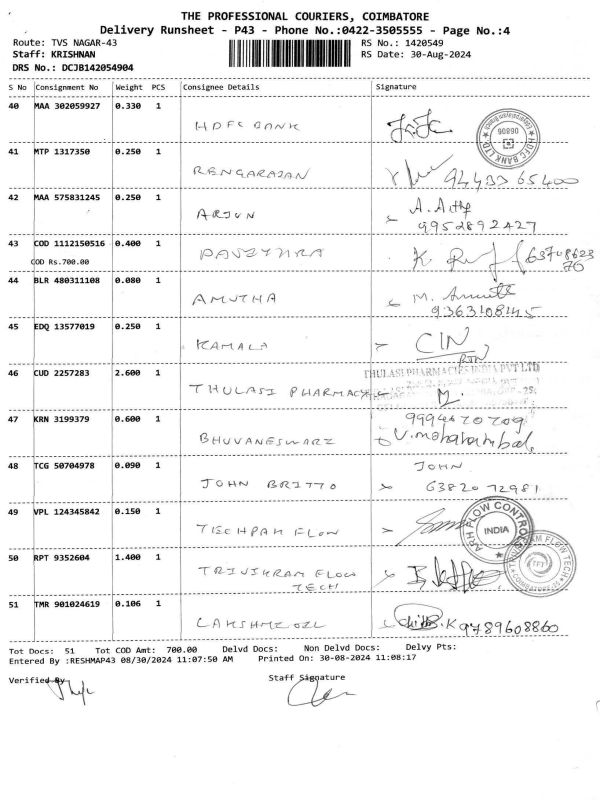 THE PROFESSIONAL COURIERS, COIMBATORE
Delivery Runsheet - P43 - Phone No.:0422-3505555 - Page No.:4
Route: TVS NAGAR-43 RS No.: 1420549
Staff: KRISHNAN RS Date: 30-Aug-2024
DRS No.: DCJB142054904
S No Consignment No Weight PCS Consignee Details Signature
40 MAA 302059927 0.330 1
HDFC BANK
HDFC BANK LTD.
41 MTP 1317350 0.250 1
RENGARAJAN
94433 65400
42 MAA 575831245 0.250 1
ARJUN A.
9952892427
43 COD 1112150516 0.400 1
COD Rs.700.00
K.
44 BLR 480311108 0.080 1
AMUTHA M.
9363108145
45 EDQ 13577019 0.250 1
KAMALA
46 CUD 2257283 2.600 1
THULASI PHARMACIES INDIA PVT LTD
THULASI PHARMACY
47 KRN 3199379 0.600 1
BHUVANESWARI
48 TCG 50704978 0.090 1 JOHN
JOHN BRITTO 63820 72981
49 VPL 124345842 0.150 1
FLOW
ARH FLOW CONTROLS
INDIA
50 RPT 9352604 1.400 1
TRIVIKRAM FLOW
TECH
51 TMR 901024619 0.106 1
LAKSHMI OIL K 9789608860
Tot Docs: 51 Tot COD Amt: 700.00 Delvd Docs: Non Delvd Docs: Delvy Pts:
Entered By :RESHMAP43 08/30/2024 11:07:50 AM Printed On: 30-08-2024 11:08:17
Verified By Staff Signature